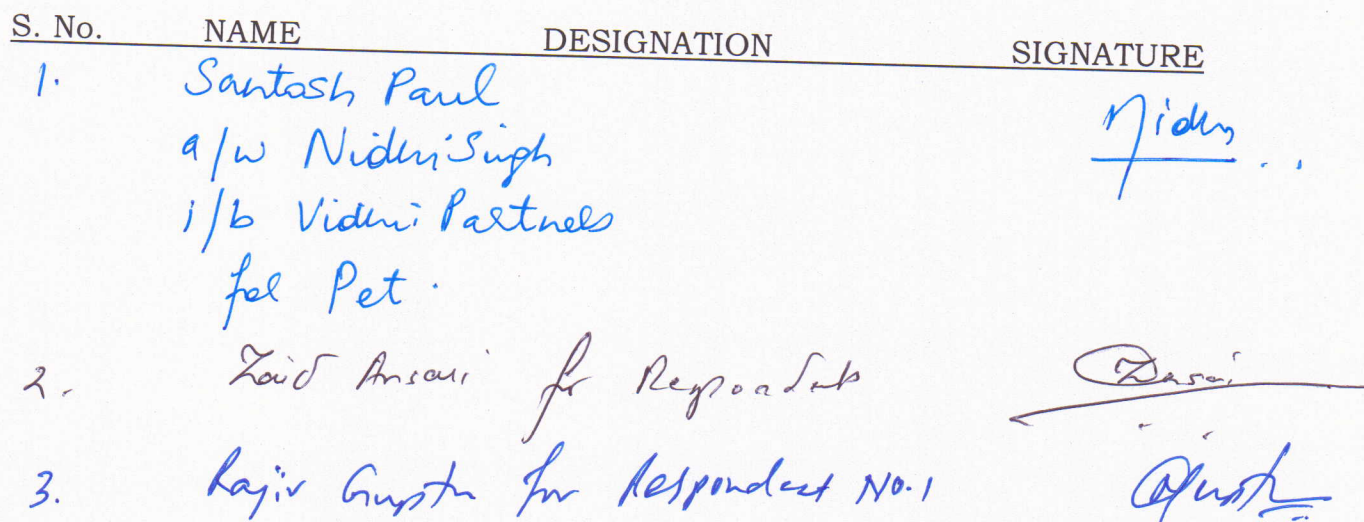 S. No. NAME DESIGNATION SIGNATURE
1. Santosh Paul
a/w Nidhi Singh Nidhi
i/b Vidhi Partners
for Pet.
2. Zaid Ansari for Respondents
3. Rajiv Gupta for Respondent No.1 Gupta